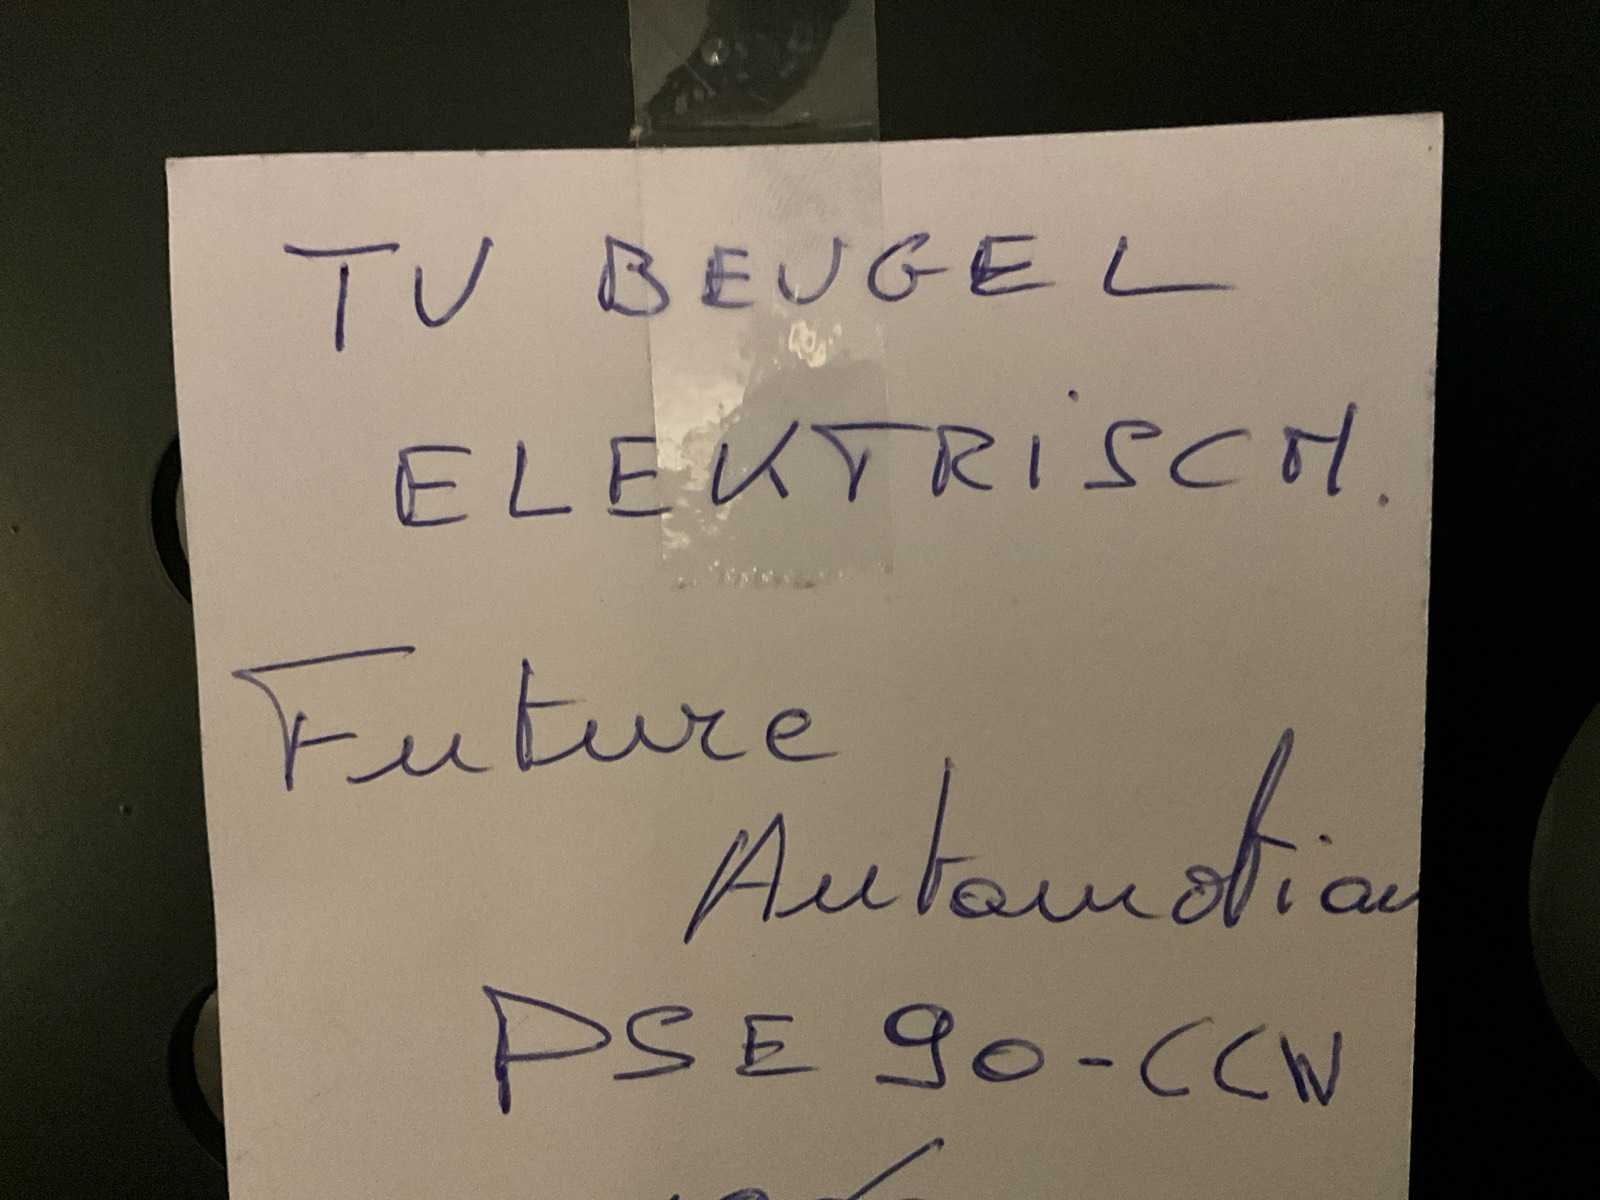 TV BEUGEL
ELEKTRiSCH.
Future
Automotion
PSE 90-CCW